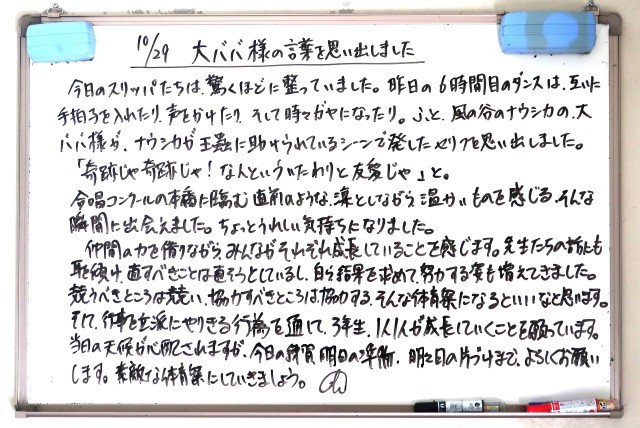 10/29 大ババ様の言葉を思い出しました
今日のスリッパたちは、驚くほどに整っていました。昨日の6時間目のダンスは、互いに
手拍子を入れたり、声をかけたり、そして時々ガヤになったり。ふと、風の谷のナウシカの、大
ババ様が、ナウシカが王蟲に助けられているシーンで発したセリフを思い出しました。
「奇跡じゃ奇跡じゃ！なんといういたわりと友愛じゃ」と。
合唱コンクールの本番に臨む直前のような、凛としながら温かいものを感じる、そんな
瞬間に出会えました。ちょっとうれしい気持ちになりました。
仲間の力を借りながら、みんながそれぞれ成長していることを感じます。先生たちの話にも
耳を傾け、直すべきことは直そうとしているし、自ら結果を求めて、努力する姿も増えてきました。
競うべきところは競い、協力すべきところは協力する、そんな体育祭になるといいなと思います。
そして、行事を立派にやりきる行為を通して、3年生、1人1人が成長していくことを願っています。
当日の天候が心配されますが、今日の練習、明日の準備、明之日の片づけまで、よろしくお願い
します。素敵な体育祭にしていきましょう。